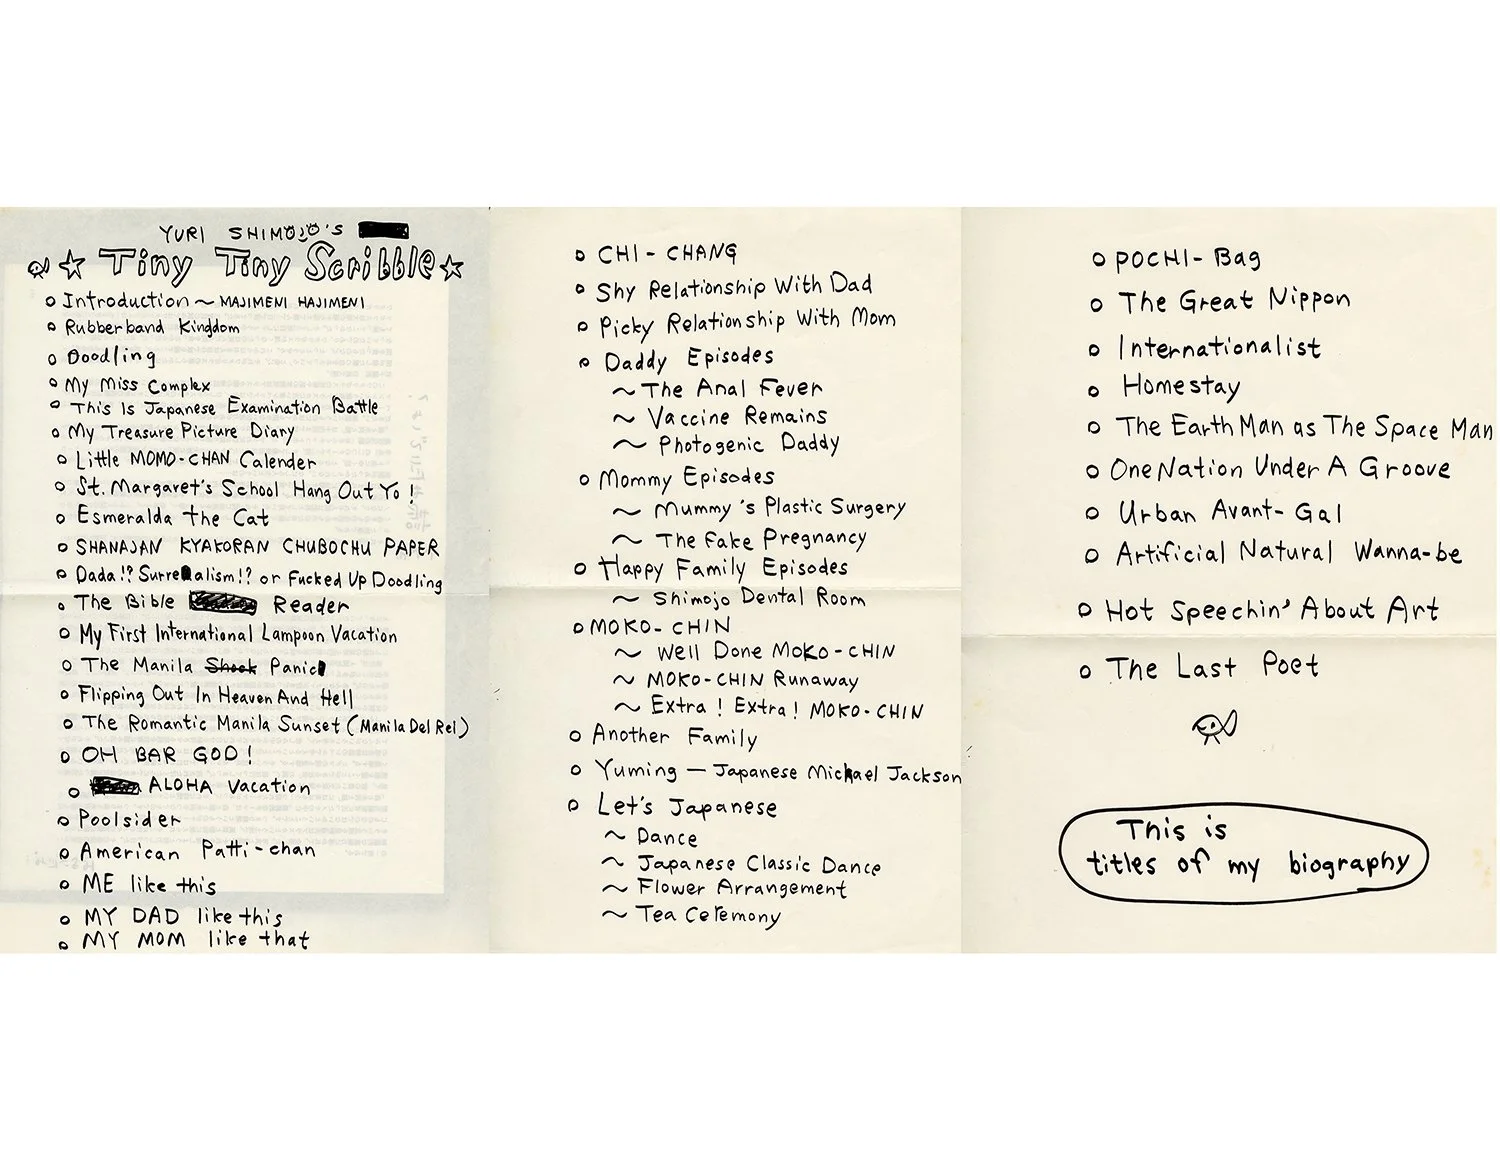 YURI SHIMOJO'S
Tiny Tiny Scribble
Introduction ~ MAJIMENI HAJIMENI
Rubberband Kingdom
Doodling
My Miss Complex
This Is Japanese Examination Battle
My Treasure Picture Diary
Little MOMO-CHAN Calender
St. Margaret's School Hang Out Yo!
Esmeralda the Cat
SHANAJAN KYAKORAN CHUBOCHU PAPER
Dada!? Surrealism!? or Fucked Up Doodling
The Bible Reader
My First International Lampoon Vacation
The Manila Shock Panic
Flipping Out In Heaven And Hell
The Romantic Manila Sunset (Manila Del Rei)
OH BAR GOD!
ALOHA Vacation
Poolsider
American Patti-chan
ME like this
MY DAD like this
MY MOM like that
CHI-CHANG
Shy Relationship With Dad
Picky Relationship With Mom
Daddy Episodes
~ The Anal Fever
~ Vaccine Remains
~ Photogenic Daddy
Mommy Episodes
~ Mummy's Plastic Surgery
~ The Fake Pregnancy
Happy Family Episodes
~ Shimojo Dental Room
MOKO-CHIN
~ Well Done MOKO-CHIN
~ MOKO-CHIN Runaway
~ Extra! Extra! MOKO-CHIN
Another Family
Yuming — Japanese Michael Jackson
Let's Japanese
~ Dance
~ Japanese Classic Dance
~ Flower Arrangement
~ Tea Ceremony
POCHI-Bag
The Great Nippon
Internationalist
Homestay
The Earth Man as The Space Man
One Nation Under A Groove
Urban Avant-Gal
Artificial Natural Wanna-be
Hot Speechin' About Art
The Last Poet
This is
titles of my biography